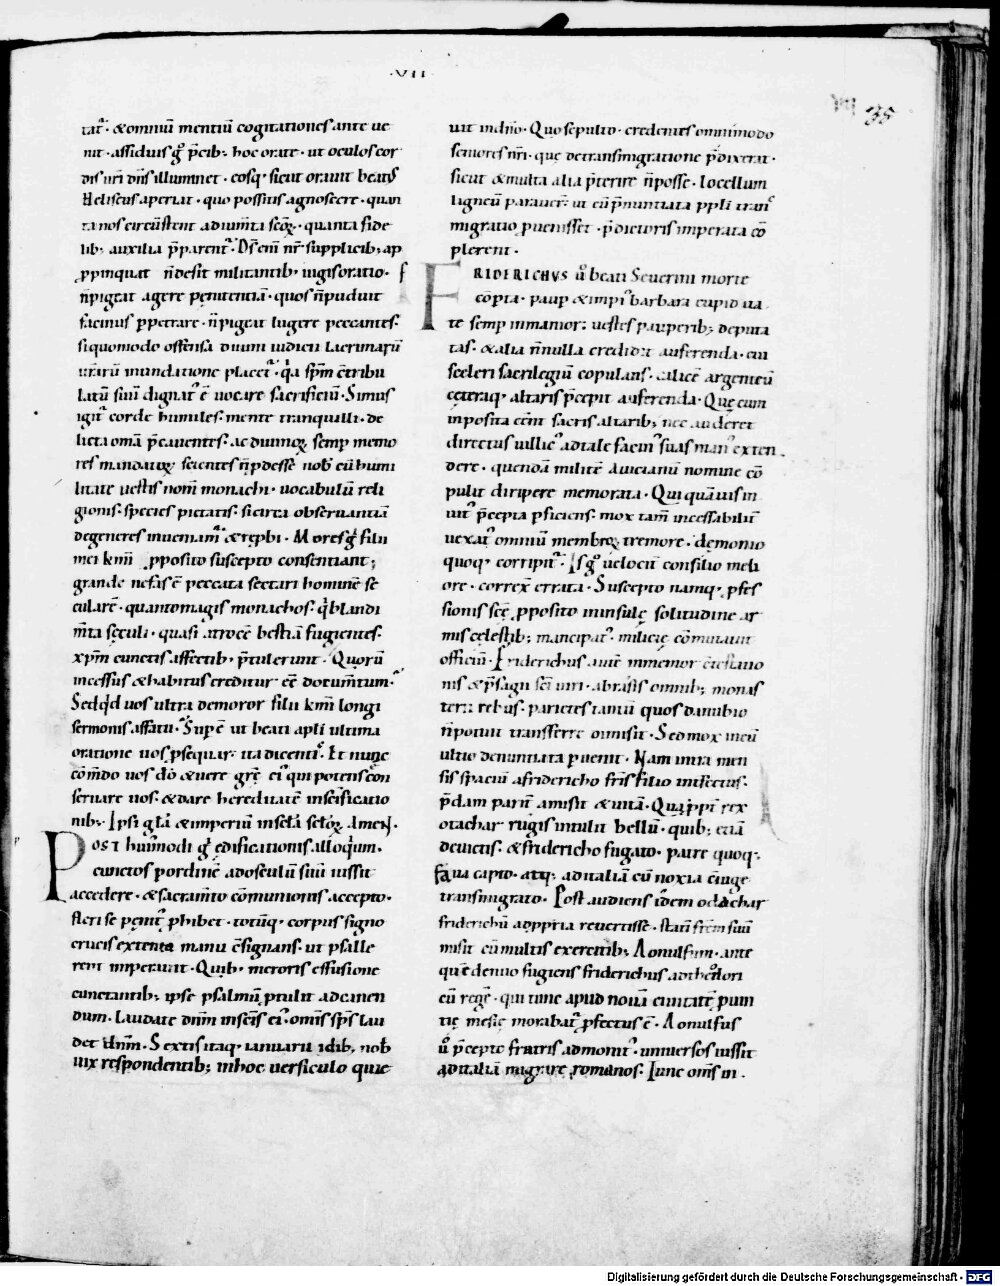 .VII
VII 135
tat᷑. & omniū mentiū cogitationes ante ue
nit. assiduis g̊ p̄cib; hoc orate. ut oculos cor
dis ur̄i dn̄s illuminet. eosq; sicut orauit beat᷒
Heliseus aperiat. quo possitis agnoscere. quan
ta nos circūstent adium̄ta scōꝝ. quanta fide
lib; auxilia p̄parent᷑. Ds̄ enī nr̄ supplicib; ap
ꝓpinquat n̄ desit militantib; iugis oratio.
n̄ pigeat agere penitentiā. quos n̄ puduit
facinus ꝑpetrare. n̄ pigeat lugere peccantes.
si quomodo offensa diuini iudicii lacrimarū
ur̄arū inundatione placet᷑. q̇a spm̄ ↄ̄tribu
latū suū dignat᷑ ē uocare sacrificiū. Simus
igit᷑ corde humiles. mente tranquilli. de
licta om̄ia p̄cauentes. ac diuinoꝝ semp memo
res mandatoꝝ scientes n̄ ꝓdesse nob̄ eū humi
litate uestis nom̄ monachi. uocabulū reli
gionis. species pietatis. si circa obseruantiā
degeneres inueniam᷑ & rep̄bi. Mores g̊ filii
mei km̄i ꝓposito suscepto consentiant;
grande nefas ē peccata sectari hominē se
cularē. quantomagis monachos. q̇ blandi
m̄ta sęculi. quasi atrocē bestiā fugientes.
xpm̄ cunctis affectib; p̄tulerunt. Quorū
incessus & habitus creditur eē̄ documtum.
Sed q̇d uos ultra demoror filii km̄i longi
sermonis affatu. Supē ut beati apl̄i ultima
oratione uos ꝓsequar. ita dicenti᷒. Et nunc
cōmdo uos dō & uerę grę̄ ei᷒ qui potens ē con
seruare uos. & dare hereditatē in sc̄ificatio
nib;. Ipsi gl̄a & imperiū in scl̄a scl̄oꝝ. amen.
POST huiusmodi g̊ ędificationis alloq̇um.
cunctos ꝑ ordinē ad osculū suū iussit
accedere. & sacram̄to cōmunionis accepto.
fleri se penit᷒ ꝓhibet. totūq; corpus signo
crucis extenta manu ↄ̄signans. ut psalle
rent imperauit. Quib; meroris effusione
cunctantib; ipse psalmū ꝓtulit ad canen
dum. Laudate dnm̄ in sc̄is ei᷒. omīs sp̄s lau
det dnm̄. Sextis itaq; ianuarii idib; nob
uix respondentib; in hoc uersiculo quie
uit in dn̄o. Quo sepulto. credentes omnimodo
seniores nr̄i. quę de transmigratione p̄dixerat.
sicut & multa alia p̄terire n̄ posse. locellum
ligneū parauer̄. ut cū p̄nuntiata ppl̄i tran᷒
migratio ꝓuenisset. p̄dictoris imperata cō
plerent.
FRIDERICHVS ū beati Seuerini morte
cōpta. paup & impi᷒ barbara cupidita
te semp inmanior. uestes pauperib; deputa
tas. & alia n̄nulla credidit auferenda. cui
sceleri sacrilegiū copulans. calicē argenteū
ceteraq; altaris p̄cepit auferenda. Quę cum
inposita ēēnt sacris altarib; nec auderet
directus uillic᷒ ad tale facin᷒ suas man᷒ exten
dere. quendā militē auicianū nomine cō
pulit diripere memorata. Qui quāuis in
uit᷒ p̄cepta ꝑficiens. mox tam̄ incessabiliū
uexat᷑ omniū membroꝝ tremore. dęmonio
quoq; corripit᷑. Is g̊ uelociū consilio meli
ore. correx̄ errata. Suscepto namq; ꝓfes
sionis scę̄ ꝓposito in insulę solitudine ar
mis cęlestib; mancipat᷒. milicię cōmutauit
officiū. Friderichus aut̄ inmemor ↄ̄testatio
nis & p̄sagii scī uiri. abrasis omnib; monas
terii rebus. parietes tantū quos danubio
n̄ potuit transferre omisit. Sed mox in eū
ultio denuntiata ꝓuenit. Nam intra men
sis spaciū a fridericho fr̄is filio int̄fectus.
p̄dam parit̄ amisit & uitā. Quapp̄t rex
otachar rugis intulit bellū. quib; etiā
deuictis. & fridericho fugato. patre quoq;
faua capto. atq; ad italiā cū noxia ↄ̄iuge
transmigrato. Post audiens idem odachar
friderichū ad ppria reuertisse. statī frēm suū
misit cū multis exercitib; Aonulfum. ante
quē denuo fugiens friderichus ad theodori
cū regē. qui tunc apud nouā ciuitatē ꝓuin
tię mesię morabat᷑ ꝓfectus ē. Aonulfus
ū p̄cepto fratris admonit᷒. uniuersos iussit
ad italiā migrare romanos. Tunc omīs in.
Digitalisierung gefördert durch die Deutsche Forschungsgemeinschaft - DFG